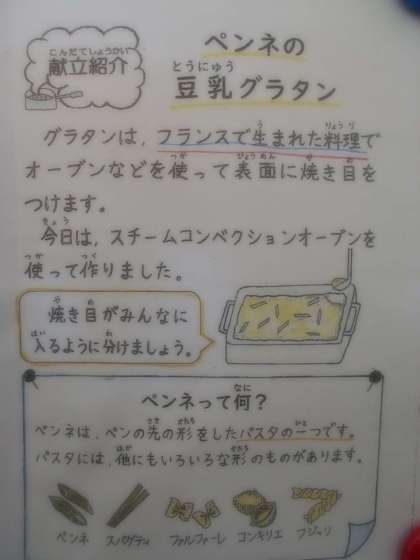 こんだてしょうかい
献立紹介
ペンネの
とうにゅう
豆乳グラタン
グラタンは，フランスで生まれた料理で
オーブンなどを使って表面に焼き目を
つけます。
今日は，スチームコンベクションオーブンを
使って作りました。
焼き目がみんなに
入るように分けましょう。
ペンネって何？
ペンネは，ペンの先の形をしたパスタの一つです。
パスタには，他にもいろいろな形のものがあります。
ペンネ スパゲティ ファルファーレ コンキリエ フジッリ